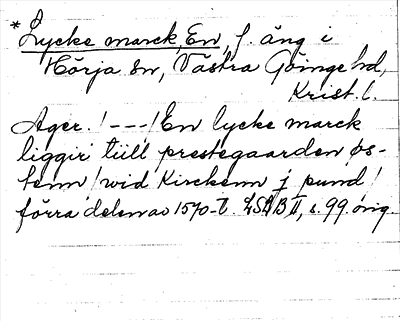 *Lycke marck, En, f. äng i
Hörja sn, Västra Göinge hd,
Krist. l.
Ager. /---/ En lycke marck
liggir tiill prestegaarden øs-
tenn / wid Kirckenn j pund /
förra delen av 1570-t. LSDB II, s. 99. orig.